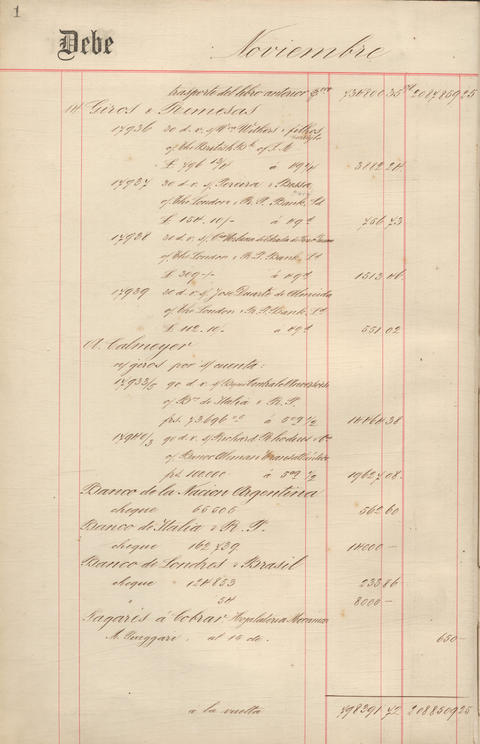 1
Debe Noviembre
Trasporte del libro anterior 734800 35 2087859 25
14 Giros & Remesas
17936 90 d. v. s/ Wm Withers & filhos
of the British Bk of S. A.
£ 796 13/4 á 49 1/4 3112 24
17937 90 d. v. s/ Pereira & Bassa
of the London & R. P. Bank Ld
£ 154.10/- á 49 d 756 73
17938 90 d. v. s/
of the London & R. P. Bank Ld
£ 309-/- á 49 d 1513 46
17939 90 d. v. s/ Jose Duarte de Almeida
of the London & R. P. Bank Ld
£ 112.10.- á 49 d 551 02
A. Calmeyer
s/ giros por s/ cuenta:
17933/5 90 d. v. s/
of Bco de Italia & R. P.
frs. 73696 á 509 1/2 14464 38
17940/3 90 d. v. s/ Richard Rhodius & Co
of Banco Aleman Transatlántico
frs. 10000 á 509 1/2 1962 708
Banco de la Nacion Argentina
cheque 66606 562 60
Banco de Italia & R. P.
cheque 162739 14000 —
Banco de Londres & Brasil
cheque 124833 233 86
" 34 8000 —
Pagarés á Cobrar Hojalateria Mecanica
A. Puiggari. al 10 de. 650 —
a la vuelta 798391 72 2088509 25